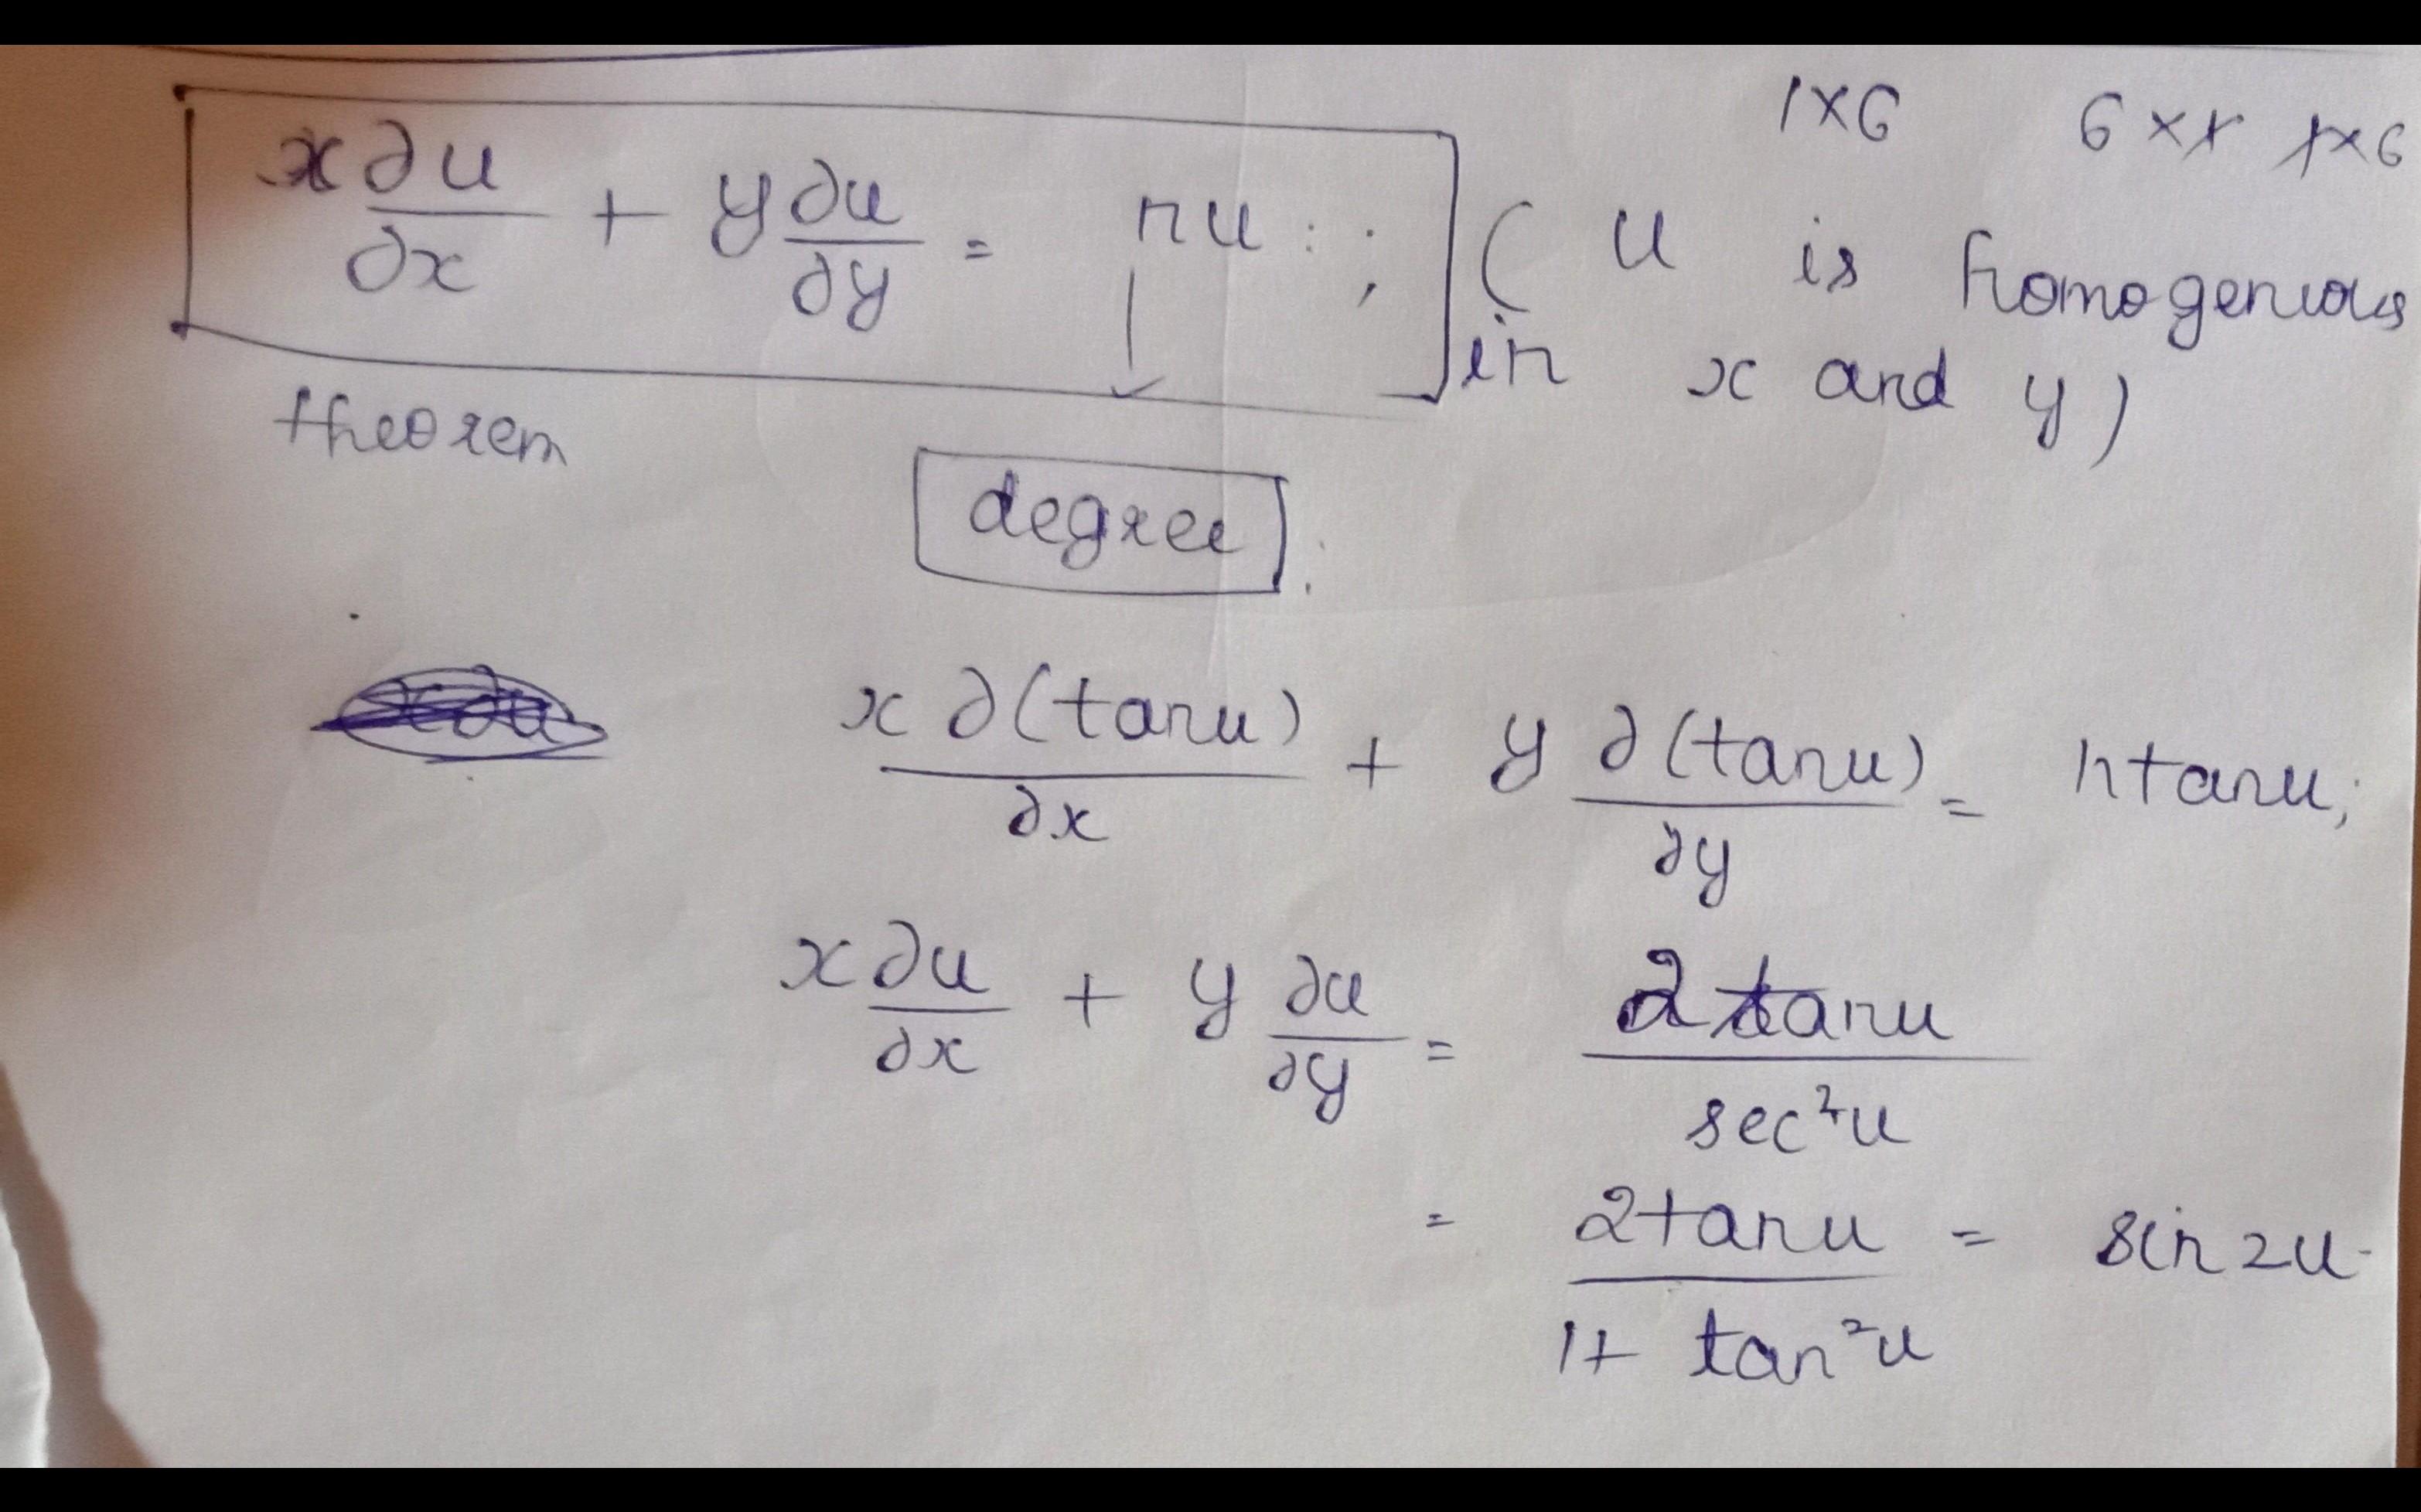 1×6 6×1 1×6
x∂u/∂x + y∂u/∂y = nu : ; ( u is homogenious
in x and y)
theorem
degree
x∂(tanu)/∂x + y∂(tanu)/∂y = ntanu;
x∂u/∂x + y∂u/∂y = 2tanu/sec²u
= 2tanu/1+tan²u = sin2u